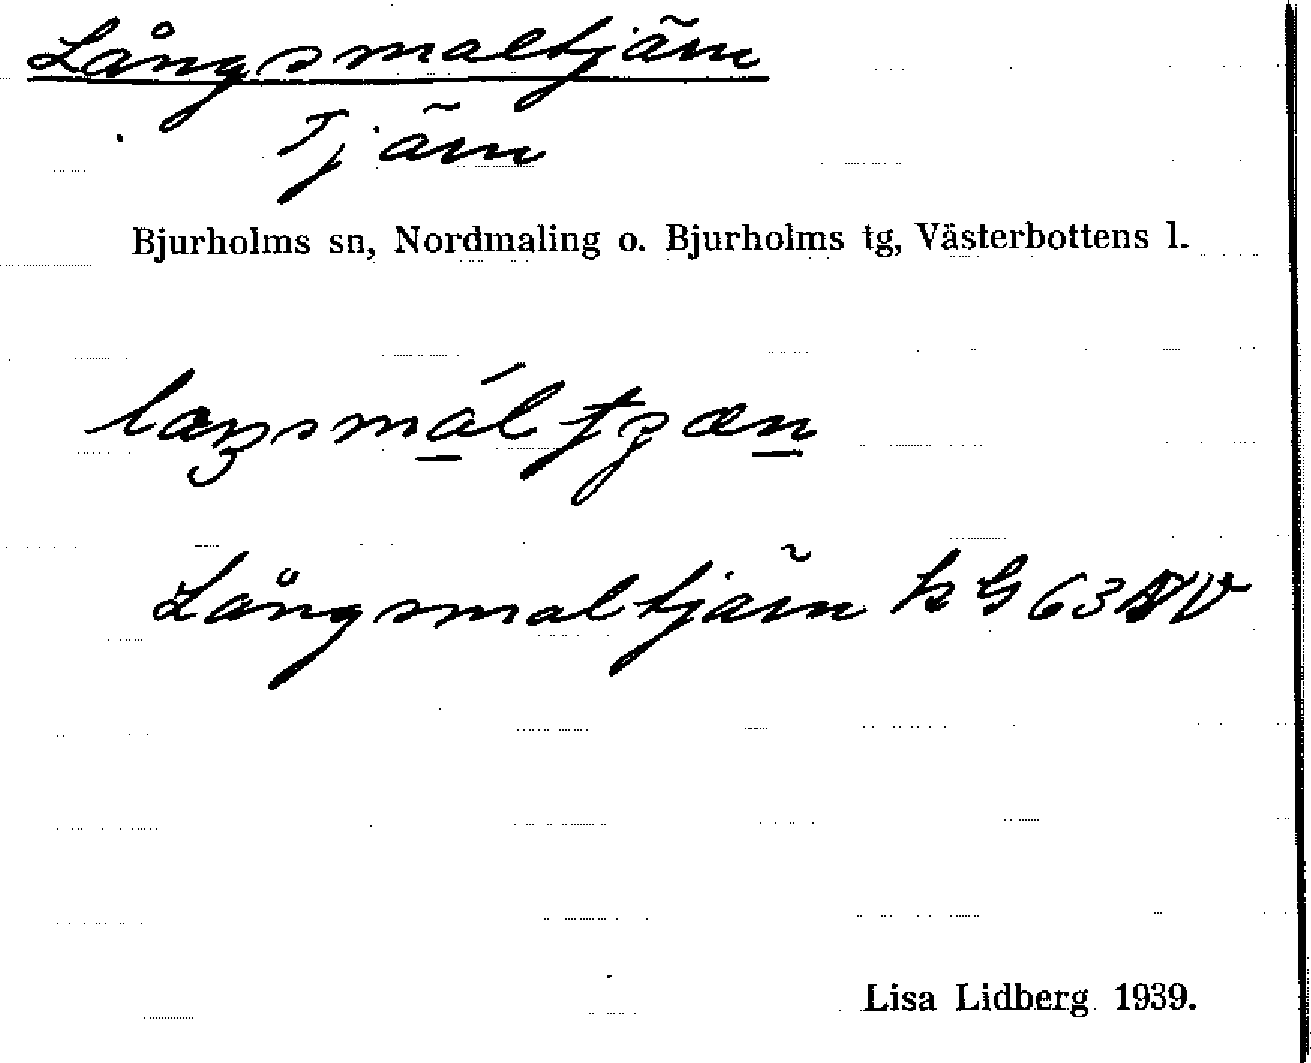 Långsmaltjärn
Tjärn
Bjurholms sn, Nordmaling o. Bjurholms tg, Västerbottens l.
Långsmaltjärn
Lisa Lidberg 1939.